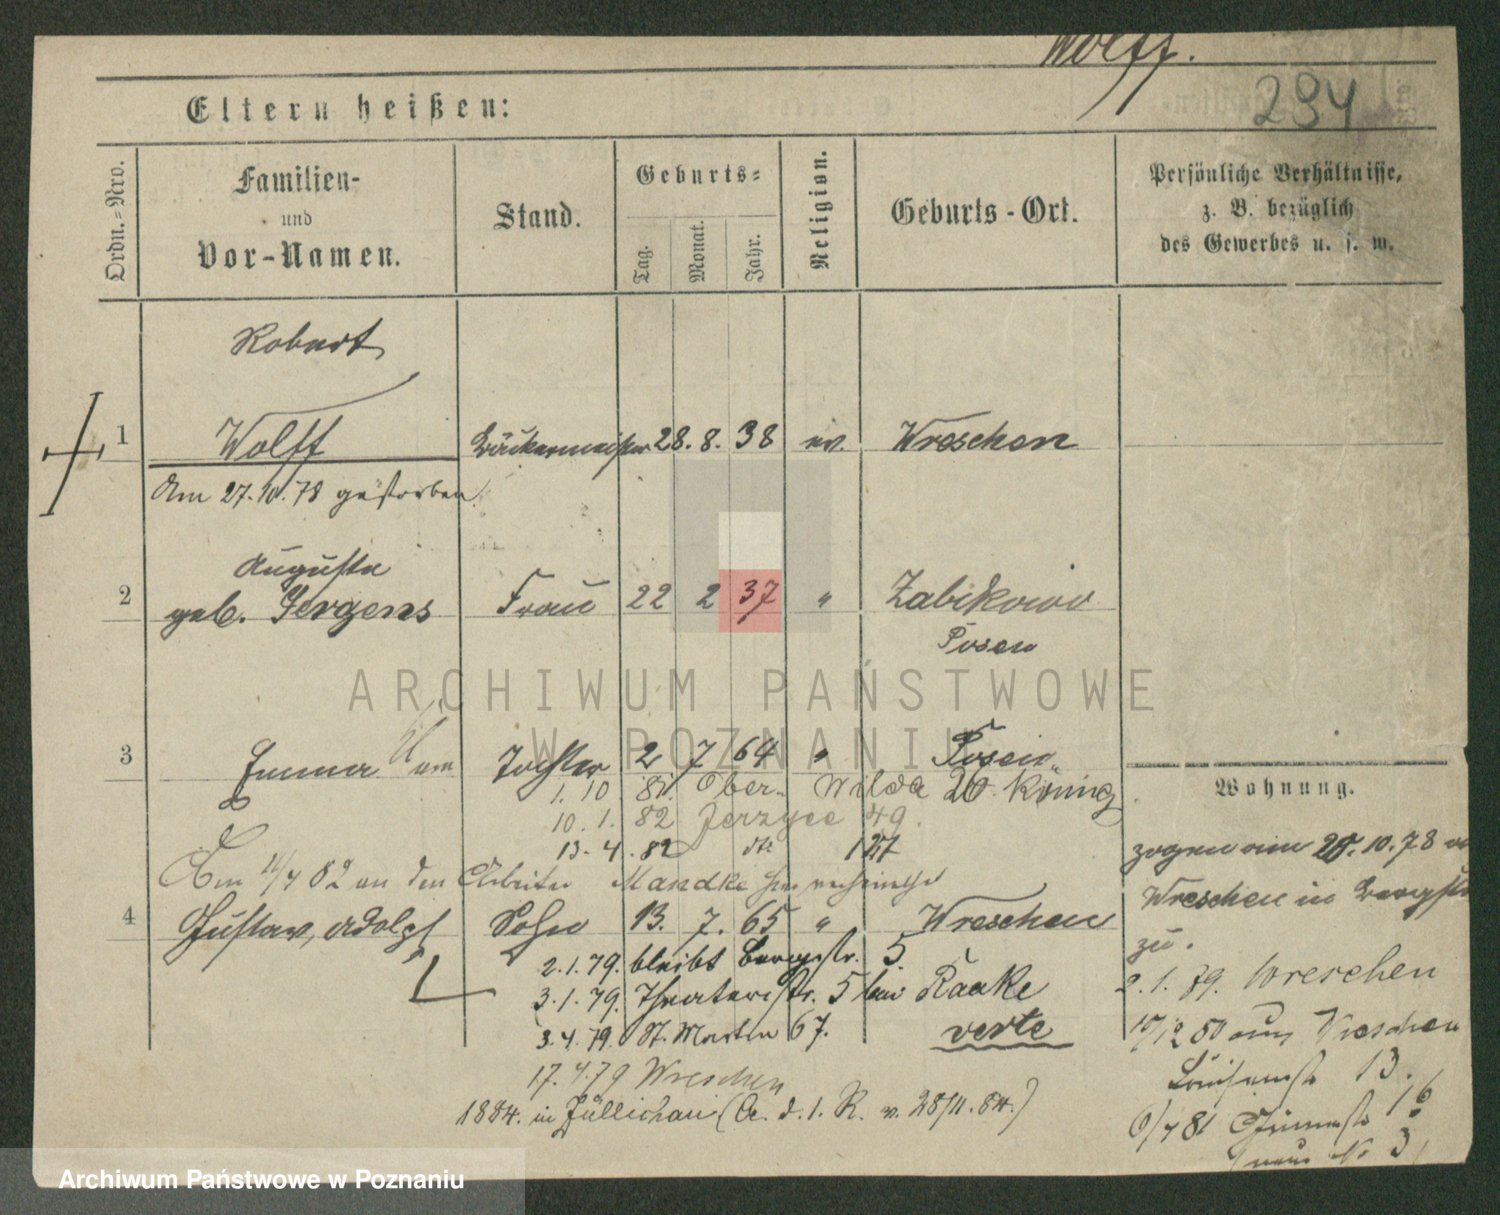 Wolff.
294
Eltern heißen:
Ordn.=Nro.
Familien-
und
Vor-Namen.
Stand.
Geburts=
Tag.
Monat.
Jahr.
Religion.
Geburts-Ort.
Persönliche Verhältnisse,
z. B. bezüglich
des Gewerbes u. s. w.
Robert
1 Wolff Bäckermeister 28. 8. 38 ev. Wreschen
Am 27.10.78 gestorben.
Auguste
2 geb. Jergens Frau 22 2 37 " Zabikowo
Posen
3 Emma Tochter 2 7 64 " Posen
1. 10. 81. Ober- Wilda 26. König
10. 1. 82 Jerzyce 49.
13. 4. 82 dto 127
Am 11/4 82 an den Arbeiter Mandke
4 Gustav, Adolf Sohn 13. 7. 65 " Wreschen
2.1.79. bleibt Bergstr. 5.
3.1.79. Theaterstr. 5 bei Raake
3.4.79. St. Martin 67. verte
17.4.79 Wreschen
1884. in Züllichau (A. d. l. R. v. 28/11.84.)
Wohnung.
zogen am 28.10.78
Wreschen in Bergstr
zu.
2.1.79. Wreschen
10/12 80 aus Wreschen
Louisenstr 13.
6/4 81 16
(neue No 3)
ARCHIWUM PAŃSTWOWE
W POZNANIU
Archiwum Państwowe w Poznaniu